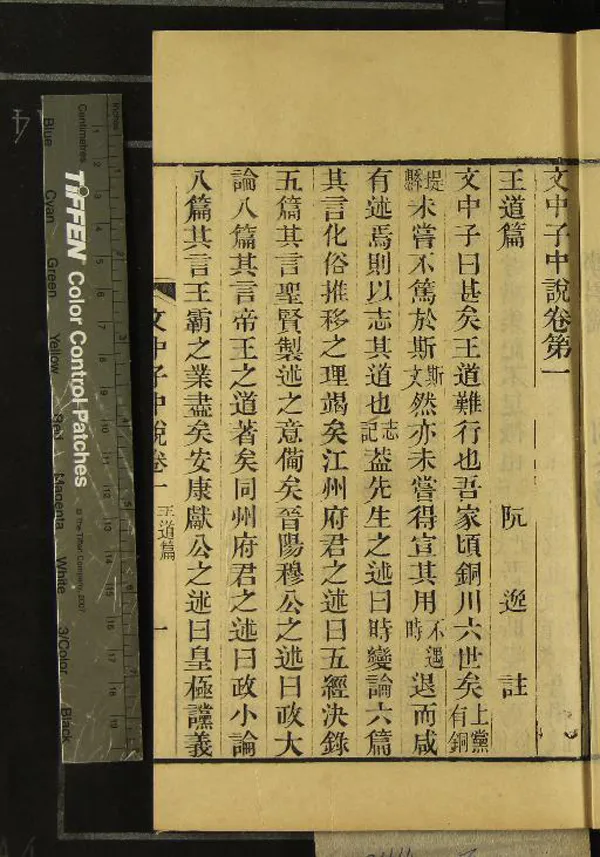 文中子中說卷第一
王道篇 阮逸註
文中子曰甚矣王道難行也吾家頃銅川六世矣上黨有銅
堤縣未嘗不篤於斯斯文然亦未嘗得宣其用不遇時退而咸
有述焉則以志其道也志記葢先生之述曰時變論六篇
其言化俗推移之理竭矣江州府君之述曰五經決錄
五篇其言聖賢製述之意備矣晉陽穆公之述曰政大
論八篇其言帝王之道著矣同州府君之述曰政小論
八篇其言王霸之業盡矣安康獻公之述曰皇極讜義
文中子中說卷一 王道篇 一
Centimetres
TIFFEN Color Control Patches
© The Tiffen Company, 2007
Blue Cyan Green Yellow Red Magenta White 3/Color Black